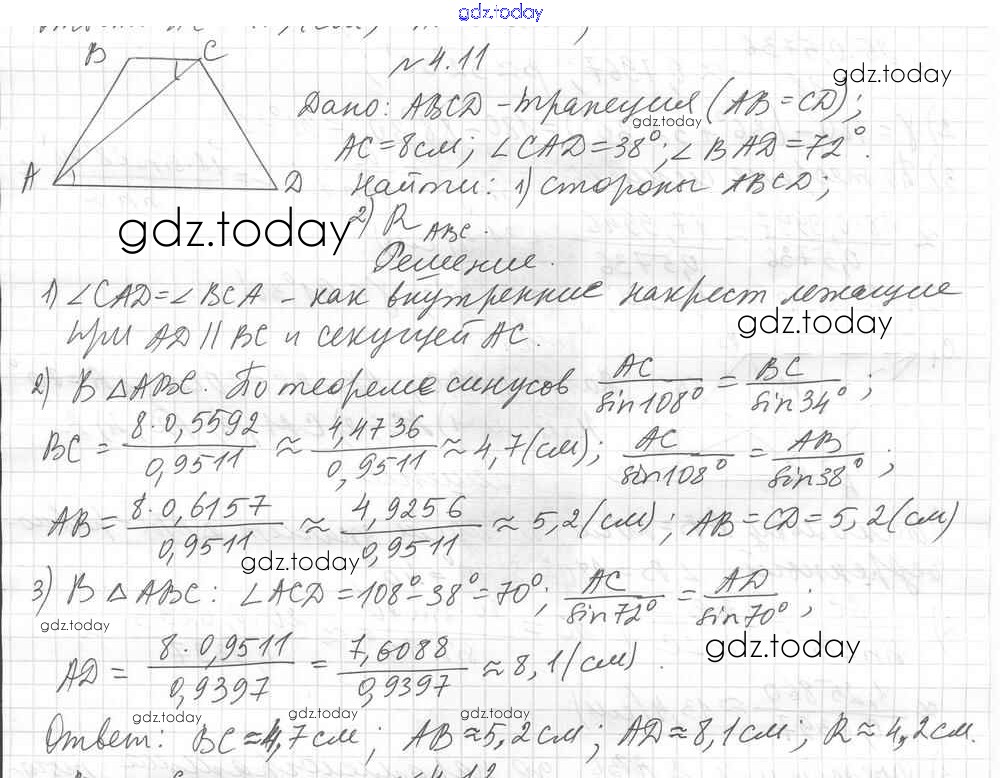 gdz.today
B C
№4.11
gdz.today
Дано: ABCD – трапеция (AB = CD);
gdz.today
AC = 8 см; ∠CAD = 38°; ∠BAD = 72°.
A D
Найти: 1) стороны ABCD;
gdz.today
2) R ABC.
Решение.
1) ∠CAD = ∠BCA – как внутренние накрест лежащие
gdz.today
при AD || BC и секущей AC.
2) В △ABC. По теореме синусов AC/sin108° = BC/sin34°;
BC = 8·0,5592/0,9511 ≈ 4,4736/0,9511 ≈ 4,7(см); AC/sin108° = AB/sin38°;
AB = 8·0,6157/0,9511 ≈ 4,9256/0,9511 ≈ 5,2(см); AB = CD = 5,2(см)
gdz.today
3) В △ABC: ∠ACD = 108° – 38° = 70°; AC/sin72° = AD/sin70°;
gdz.today
gdz.today
AD = 8·0,9511/0,9397 = 7,6088/0,9397 ≈ 8,1(см).
gdz.today gdz.today gdz.today
Ответ: BC ≈ 4,7 см; AB ≈ 5,2 см; AD ≈ 8,1 см; R ≈ 4,2 см.